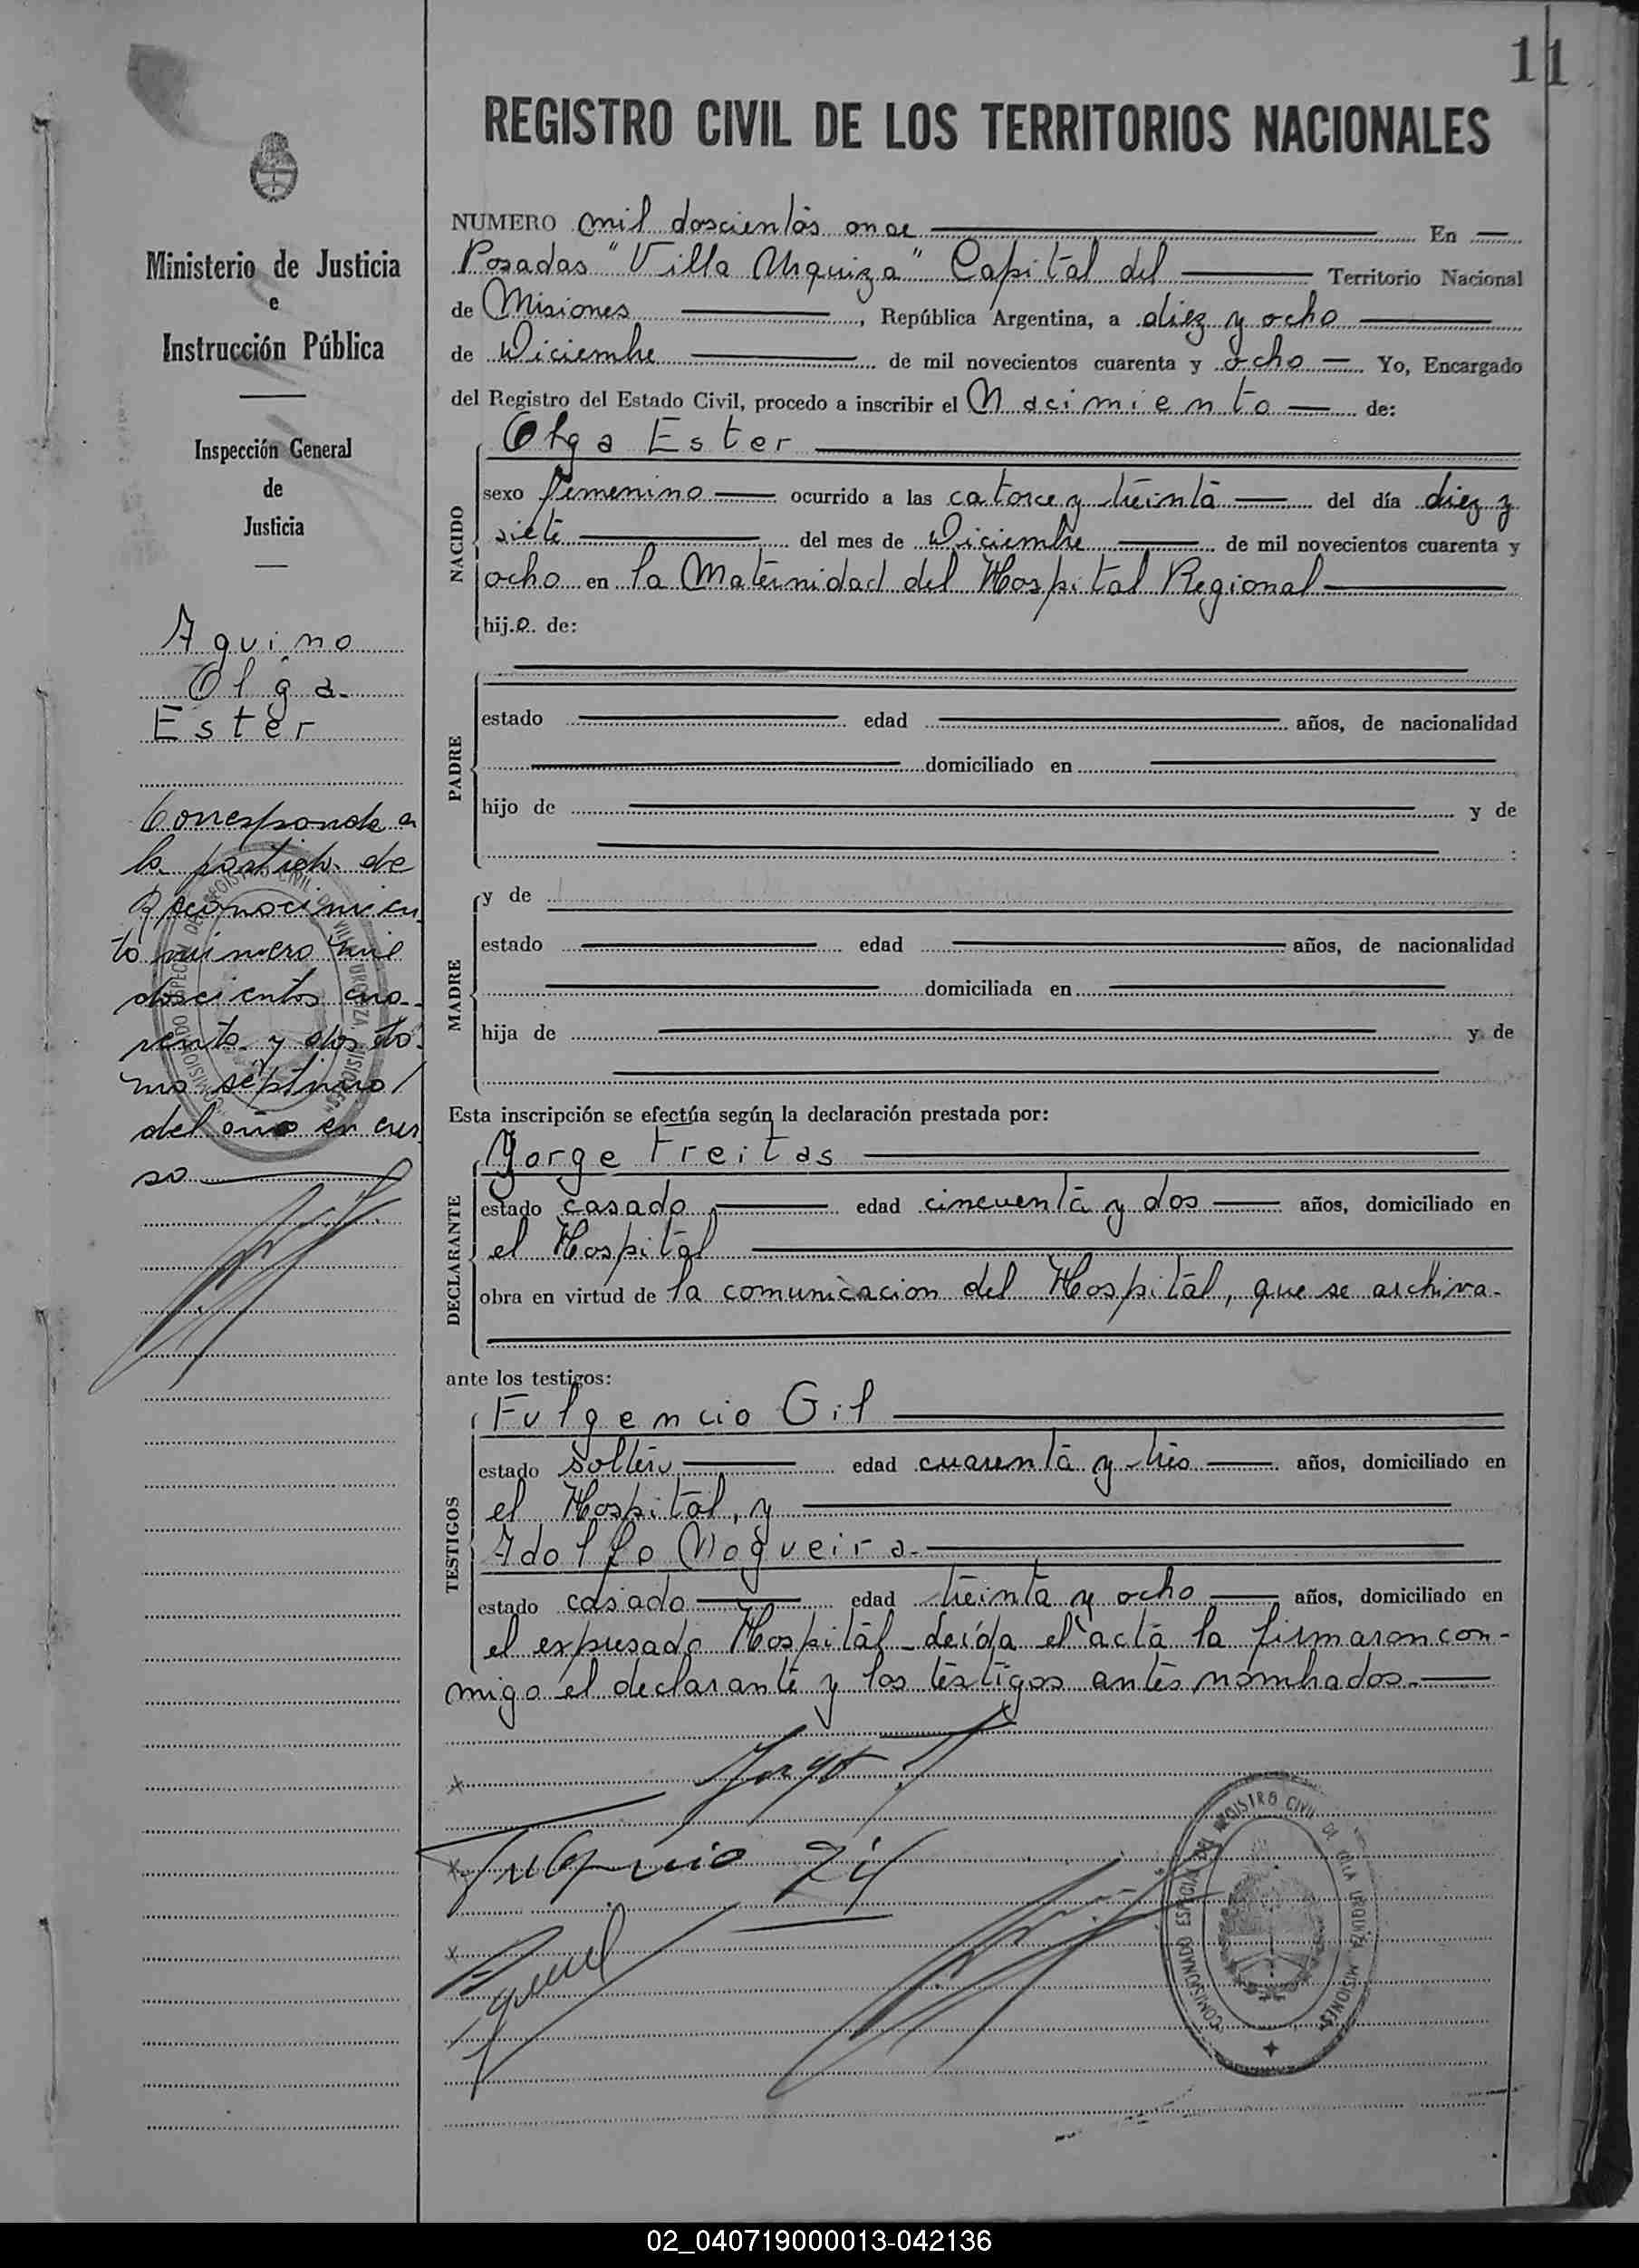 11
REGISTRO CIVIL DE LOS TERRITORIOS NACIONALES
Ministerio de Justicia
e
Instrucción Pública
Inspección General
de
Justicia
Aquino
Olga
Ester
Corresponde a
la partida de
Reconocimien
to número mil
doscientos cua-
renta y dos to-
mo séptimo
del año en cur
so
NUMERO mil doscientos once En
Posadas "Villa Urquiza" Capital del Territorio Nacional
de Misiones, República Argentina, a diez y ocho
de Diciembre de mil novecientos cuarenta y ocho Yo, Encargado
del Registro del Estado Civil, procedo a inscribir el Nacimiento de:
Olga Ester
NACIDO
sexo femenino ocurrido a las catorce y treinta del día diez y
siete del mes de Diciembre de mil novecientos cuarenta y
ocho en la Maternidad del Hospital Regional
hij.a de:
PADRE
estado edad años, de nacionalidad
domiciliado en
hijo de y de
:
MADRE
y de
estado edad años, de nacionalidad
domiciliada en
hija de y de
Esta inscripción se efectúa según la declaración prestada por:
DECLARANTE
Jorge Freitas
estado casado edad cincuenta y dos años, domiciliado en
el Hospital
obra en virtud de la comunicacion del Hospital, que se archiva.
ante los testigos:
TESTIGOS
Fulgencio Gil
estado soltero edad cuarenta y tres años, domiciliado en
el Hospital, y
Adolfo Nogueira
estado casado edad treinta y ocho años, domiciliado en
el expresado Hospital-Leída el acta la firmaron con-
migo el declarante y los testigos antes nombrados.
Jorge F
Fulgencio Gil
COMISIONADO ESPECIAL DEL REGISTRO CIVIL DE VILLA URQUIZA MISIONES
02_040719000013-042136